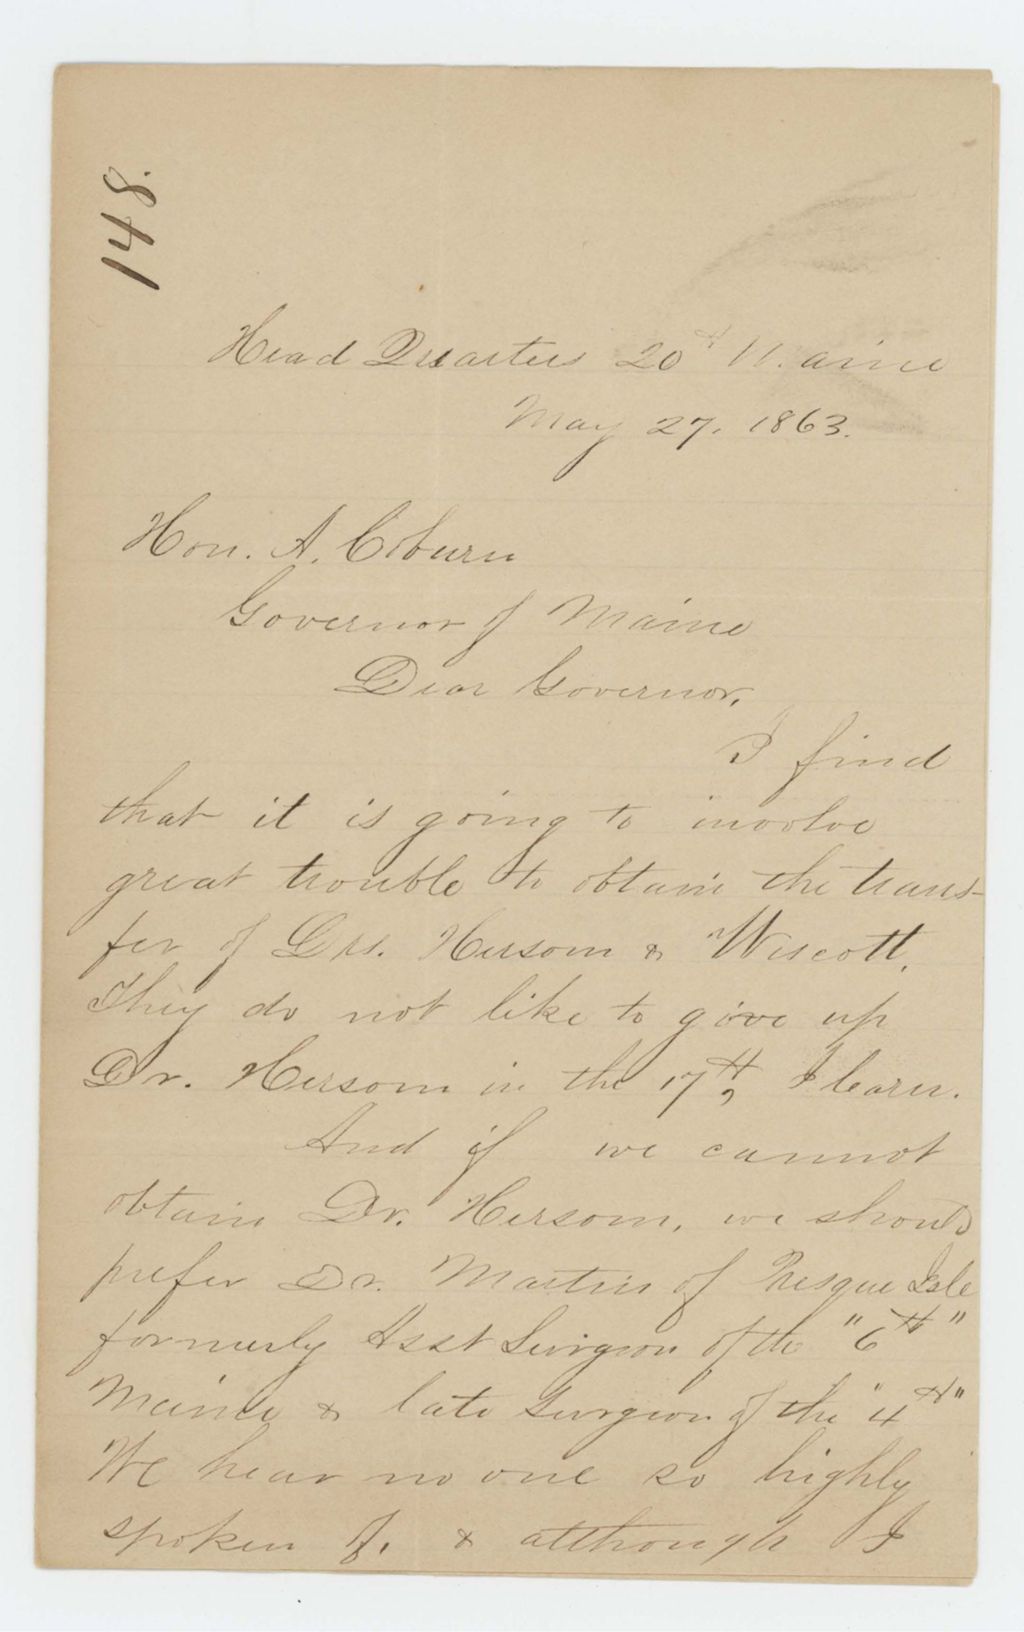 148.
Head Quarters 20th Maine
May 27. 1863.
Hon. A. Coburn
Governor of Maine
Dear Governor,
I find
that it is going to involve
great trouble to obtain the trans-
fer of Drs. Hersom & Wescott.
They do not like to give up
Dr. Hersom in the 17th, I learn.
And if we cannot
obtain Dr. Hersom, we should
prefer Dr. Martin of Presque Isle
formerly Asst Surgeon of the "6th"
Maine & late Surgeon of the "4th"
We hear no one so highly
spoken of, & although I